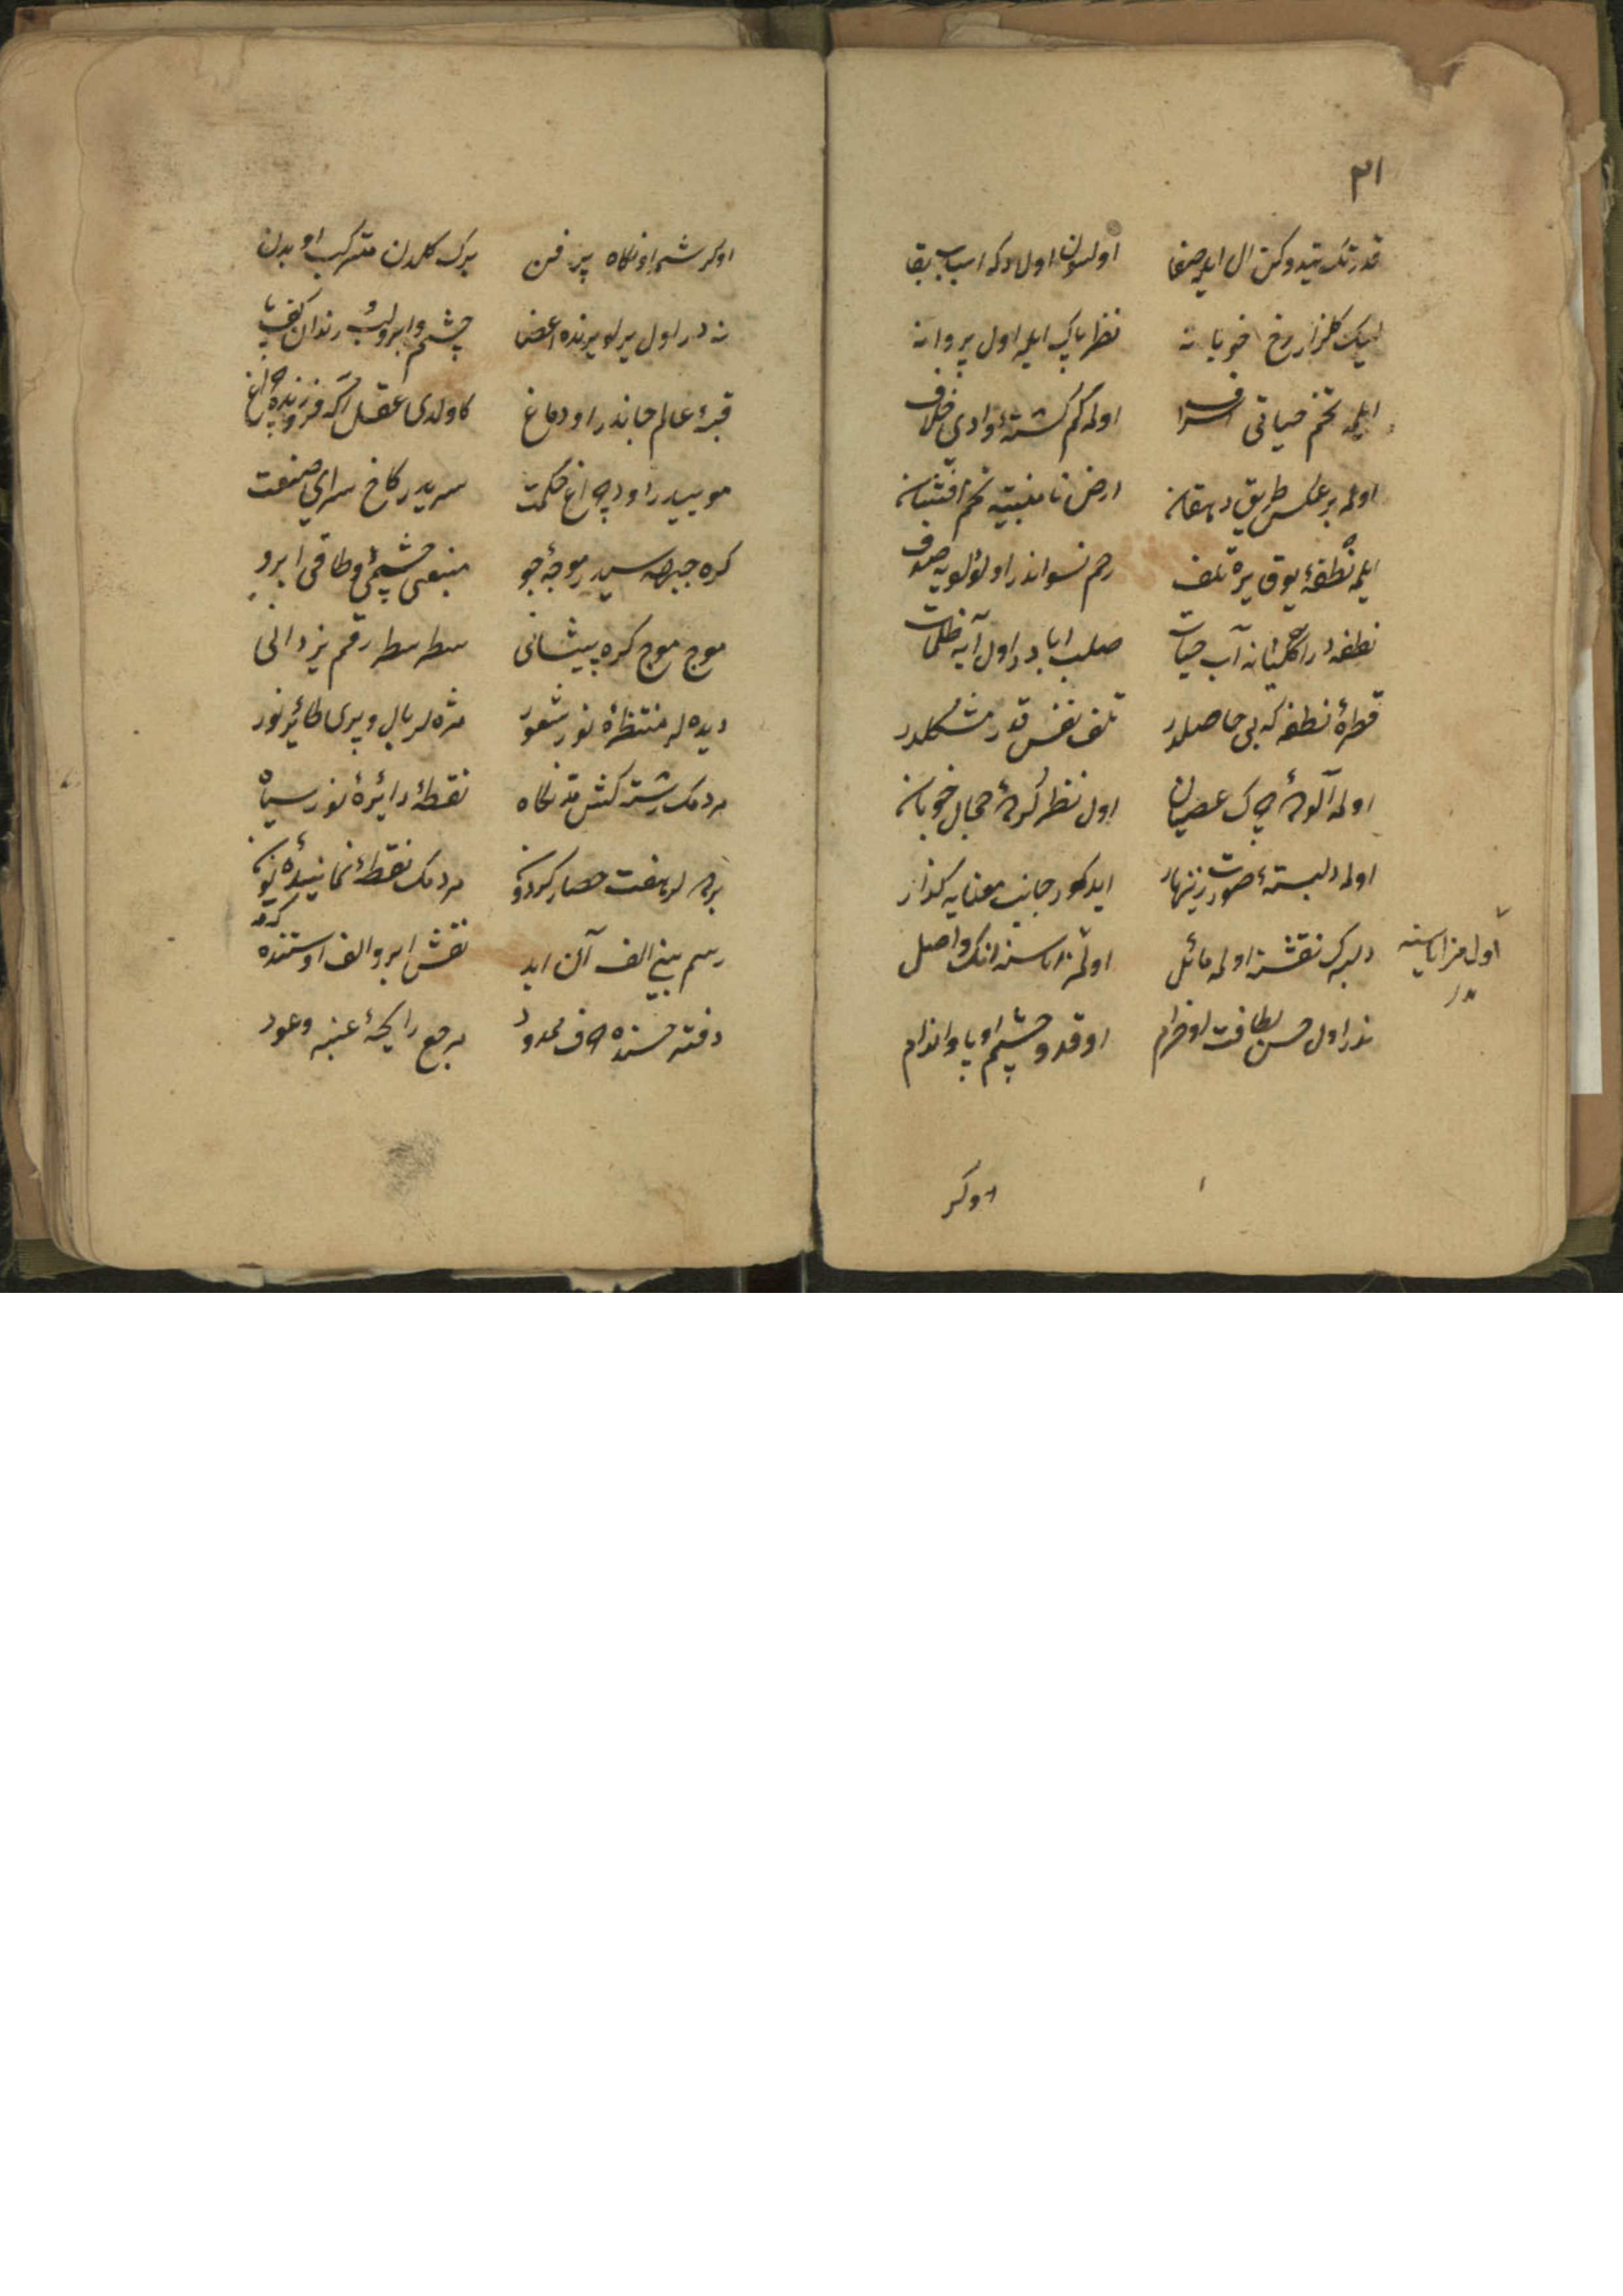 ٣١
قدرتك يتدوكن ال ايله صفا اولسون اولادكه اسباب بقا
ليك كلزار رخ خوبانه نظر پاك ايله اول پروانه
ايلمه تخم حياتى اسراف اولمه كم كشتهٔ وادئ خلاف
اولمه بر عكس طريق دهقان ارض نا منبتيه تخم افشان
ايلمه نطفهٔ يوق يره تلف رحم نسواندر او لؤلؤيه صدف
نطفه در اكثيانه آب حيات صلب ابا در اول آبه ظلمات
قطرهٔ نطفه كه بى حاصلدر تلف نفس قدر مشكلدر
اولمه آلودهٔ چرك عصيان اول نظر كردهٔ جمال خوبان
اولمه دلبستهٔ صورت زينهار ايده كور جانب معنايه كذار
دلبرك نقشنه اولمه مائل اوله نداسنه انك واصل
اول مزاياسنه
ندر اول حسن لطافت او خرام او قد و چشم او پا و اندام
اوكر
اوكرشمه او نكاه پر فن برك كلدن متركب او بدن
نه در اول يرلو يرنده اعضا چشم و ابرو لب و دندان كف پا
قبهٔ عالم جاندر او دماغ كاولدى عقل اكه فروزنده چراغ
موييدر دود چراغ حكمت سريدر كاخ سراى صنعت
كره جبهه سيدر موجهٔ جو منبعى چشمى و طاقى ابرو
موج موج كره پيشانى سطر سطر رقم يزدانى
ديده لر منتظرهٔ نور شعور مژه لر بال و پرى طائر نور
مردمك رشته كش مد نكاه نقطهٔ دائرهٔ نور سياه
پرده لر هفت حصار كردون مردمك نقطهٔ نمايندهٔ نون
رسم بينى الف آلن ايده نقش ابرو الف اوستنده مده
دفتر حسنده حرف ممدود مرجع رايحهٔ عنبر و عود